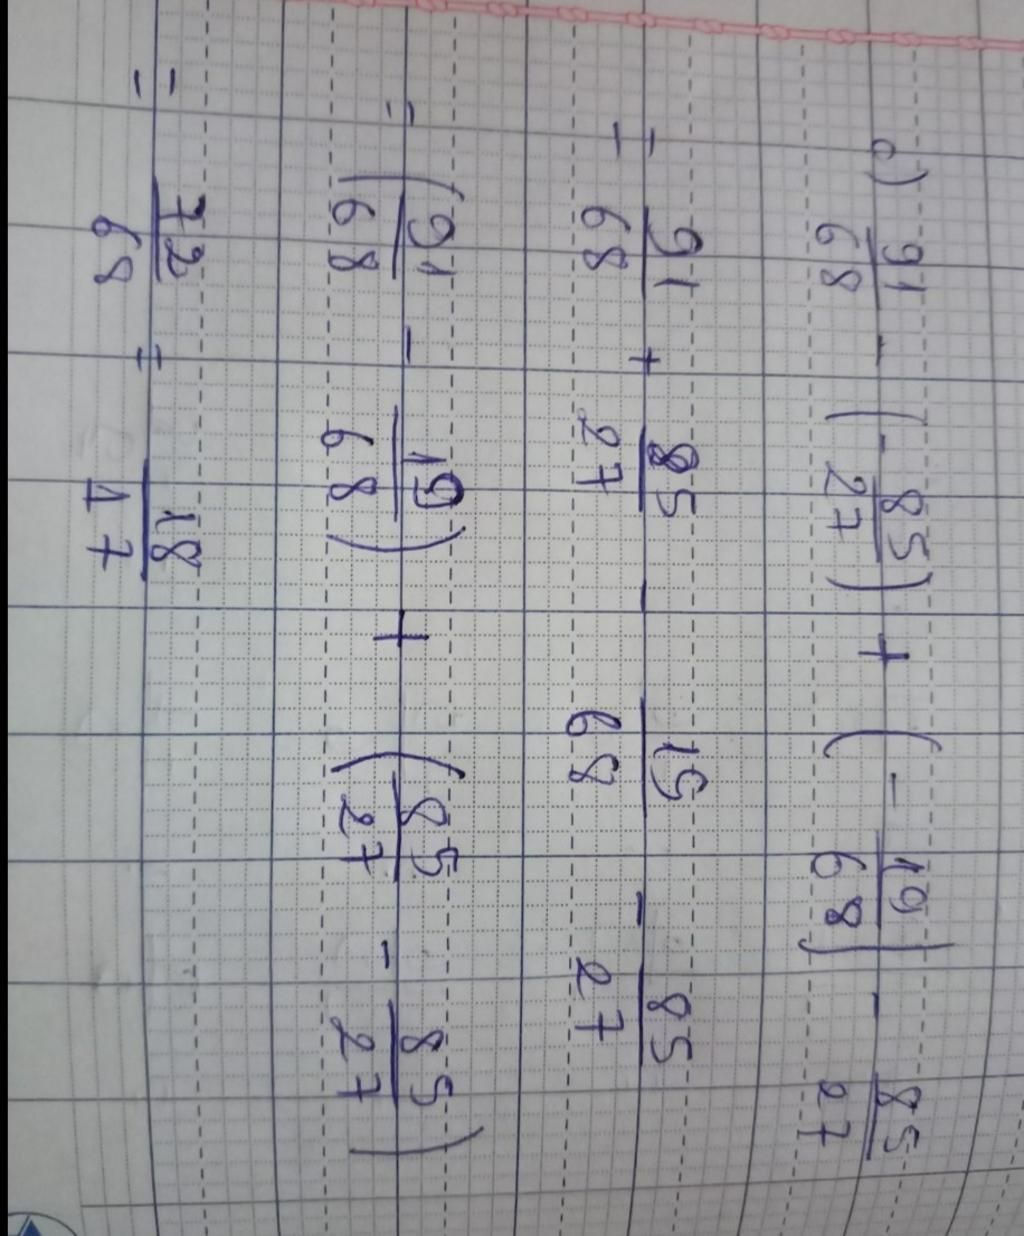 c) 91/68 - (-85/27) + (-19/68) - 85/27
= 91/68 + 85/27 - 19/68 - 85/27
= (91/68 - 19/68) + (85/27 - 85/27)
= 72/68 = 18/17